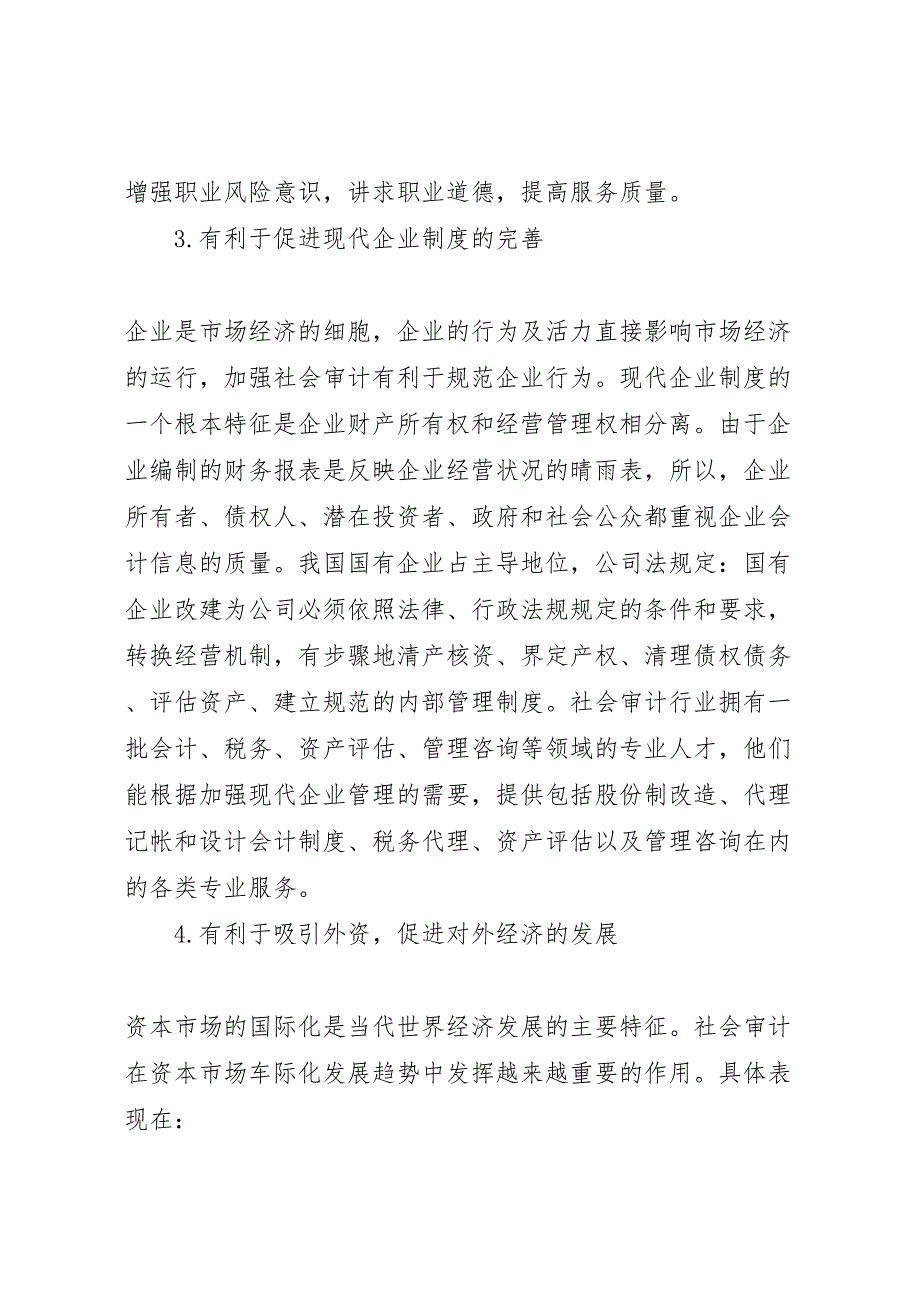 增强职业风险意识，讲求职业道德，提高服务质量。
3.有利于促进现代企业制度的完善
企业是市场经济的细胞，企业的行为及活力直接影响市场经济
的运行，加强社会审计有利于规范企业行为。现代企业制度的
一个根本特征是企业财产所有权和经营管理权相分离。由于企
业编制的财务报表是反映企业经营状况的晴雨表，所以，企业
所有者、债权人、潜在投资者、政府和社会公众都重视企业会
计信息的质量。我国国有企业占主导地位，公司法规定：国有
企业改建为公司必须依照法律、行政法规规定的条件和要求，
转换经营机制，有步骤地清产核资、界定产权、清理债权债务
、评估资产、建立规范的内部管理制度。社会审计行业拥有一
批会计、税务、资产评估、管理咨询等领域的专业人才，他们
能根据加强现代企业管理的需要，提供包括股份制改造、代理
记帐和设计会计制度、税务代理、资产评估以及管理咨询在内
的各类专业服务。
4.有利于吸引外资，促进对外经济的发展
资本市场的国际化是当代世界经济发展的主要特征。社会审计
在资本市场车际化发展趋势中发挥越来越重要的作用。具体表
现在：